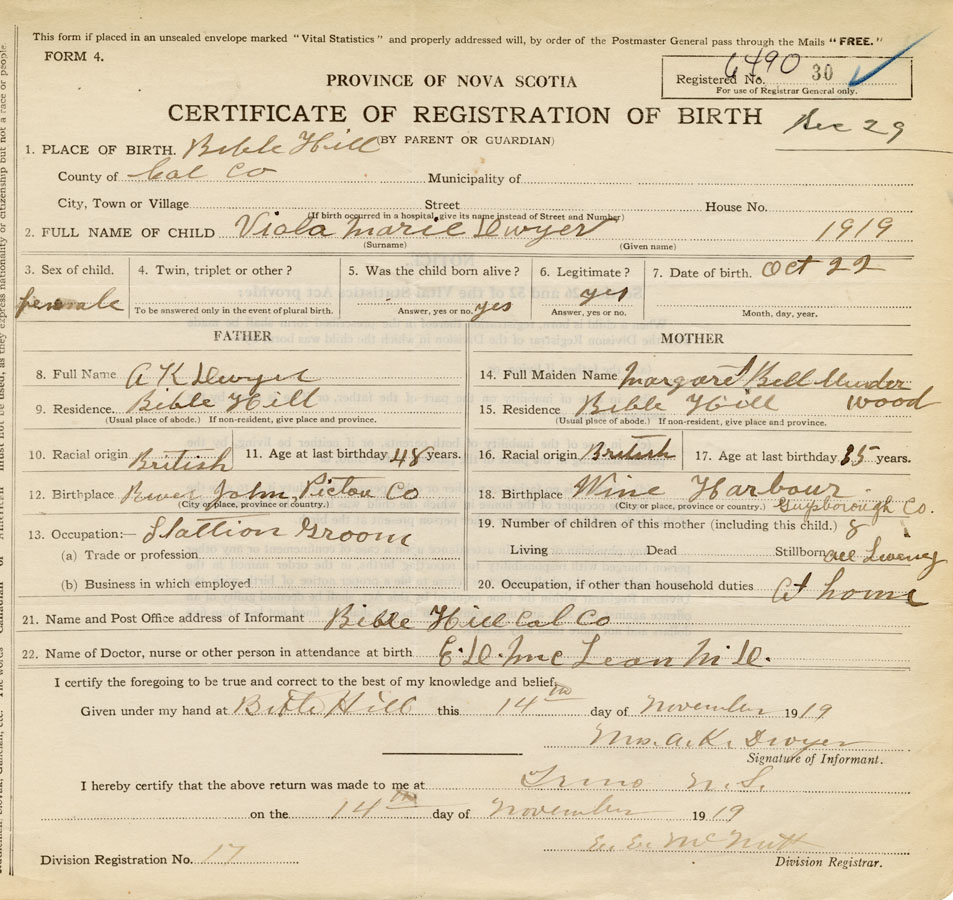 This form if placed in an unsealed envelope marked "Vital Statistics" and properly addressed will, by order of the Postmaster General pass through the Mails "FREE."
FORM 4.
Registered No. 6490 30
For use of Registrar General only.
PROVINCE OF NOVA SCOTIA
CERTIFICATE OF REGISTRATION OF BIRTH
Dec 29
(BY PARENT OR GUARDIAN)
1. PLACE OF BIRTH. Bible Hill
County of Col Co Municipality of
City, Town or Village Street House No.
(If birth occurred in a hospital, give its name instead of Street and Number)
2. FULL NAME OF CHILD Viola Marie Dwyer 1919
(Surname) (Given name)
3. Sex of child. 4. Twin, triplet or other? 5. Was the child born alive? 6. Legitimate? 7. Date of birth. Oct 22
female yes yes
To be answered only in the event of plural birth. Answer, yes or no. Answer, yes or no. Month, day, year.
FATHER MOTHER
8. Full Name A K Dwyer 14. Full Maiden Name Margaret Bell Underwood
9. Residence. Bible Hill 15. Residence Bible Hill
(Usual place of abode.) If non-resident, give place and province. (Usual place of abode.) If non-resident, give place and province.
10. Racial origin British 11. Age at last birthday 48 years. 16. Racial origin British 17. Age at last birthday 35 years.
12. Birthplace River John Pictou Co 18. Birthplace Wine Harbour Guysborough Co.
(City or place, province or country.) (City or place, province or country.)
13. Occupation:— Stattion Groom 19. Number of children of this mother (including this child.) 8
(a) Trade or profession Living Dead Stillborn all
(b) Business in which employed 20. Occupation, if other than household duties At home
21. Name and Post Office address of Informant Bible Hill Col Co
22. Name of Doctor, nurse or other person in attendance at birth E. D. McLean M. D.
I certify the foregoing to be true and correct to the best of my knowledge and belief.
Given under my hand at Bible Hill this 14th day of November 1919
Mrs. A. K. Dwyer
Signature of Informant.
I hereby certify that the above return was made to me at Truro N. S.
on the 14th day of November 1919
E. E. McNutt
Division Registration No. 17 Division Registrar.